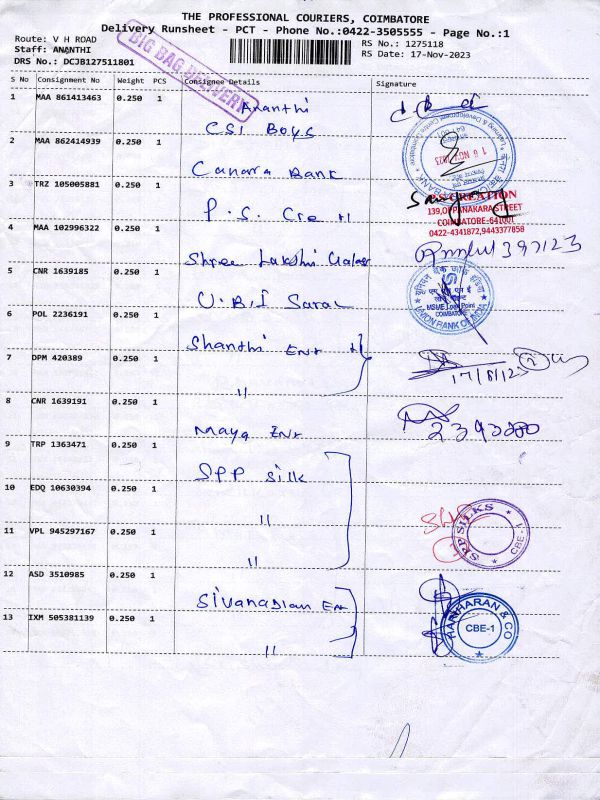 THE PROFESSIONAL COURIERS, COIMBATORE
Delivery Runsheet - PCT - Phone No.:0422-3505555 - Page No.:1
Route: V H ROAD
RS No.: 1275118
Staff: ANANTHI
RS Date: 17-Nov-2023
DRS No.: DCJB127511801
BIG BAG DELIVERY
S No Consignment No Weight PCS Consignee Details Signature
1 MAA 861413463 0.250 1 Ananthi
CSI Boys
2 MAA 862414939 0.250 1
Canara Bank
3 TRZ 105005881 0.250 1
P.S. Cre
P.S CREATION
139,OPPANAKARA STREET
COIMBATORE-641001
0422-4341872,9443377858
4 MAA 102996322 0.250 1
Shree Lakshi
397123
5 CNR 1639185 0.250 1
U.B.I
UNION BANK OF INDIA
MSME Loan Point
COIMBATORE
6 POL 2236191 0.250 1
Shanthi Ent
7 DPM 420389 0.250 1
17/8/12
"
8 CNR 1639191 0.250 1
Maya Ent
9 TRP 1363471 0.250 1
SPP Silk
10 EDQ 10630394 0.250 1
"
SPP SILKS
CBE-1
11 VPL 945297167 0.250 1
"
12 ASD 3510985 0.250 1
13 IXM 505381139 0.250 1
HARIHARAN & CO
CBE-1
"